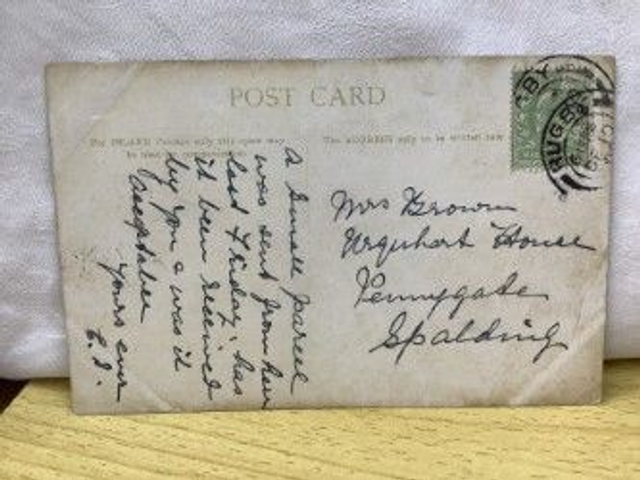 POST CARD
For INLAND Postage only this space may
be used for
The ADDRESS only to be written here
A small parcel
was sent from here
last Friday. has
it been received
by you & was it
acceptable
Yours ever
Mrs Brown
Urquhart House
Pennygate
Spalding
RUGBY
RUGBY